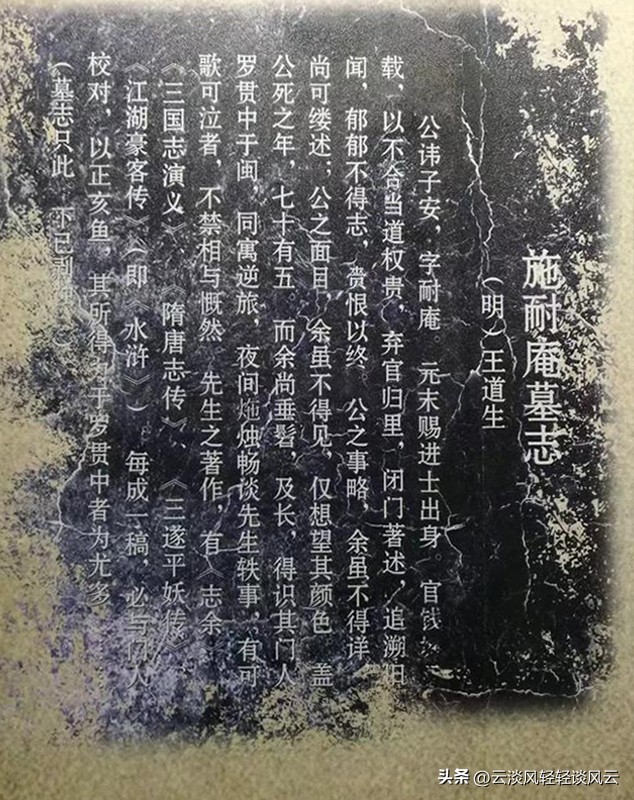 施耐庵墓志
（明）王道生
公讳子安，字耐庵。元末赐进士出身。官钱
载，以不合当道权贵，弃官归里，闭门著述，追溯旧
闻，郁郁不得志，赍恨以终。公之事略，余虽不得详，
尚可缕述；公之面目，余虽不得见，仅想望其颜色。盖
公死之年，七十有五。而余尚垂髫，及长，得识其门人
罗贯中于闽，同寓逆旅，夜间炧烛畅谈先生轶事，有可
歌可泣者，不禁相与慨然。先生之著作，有《志余》
《三国志演义》、《隋唐志传》、《三遂平妖传》、
《江湖豪客传》（即《水浒》）。每成一稿，必与门人
校对，以正亥鱼，其所得力于罗贯中者为尤多
（墓志只此 下已剥
头条 @云淡风轻轻谈风云